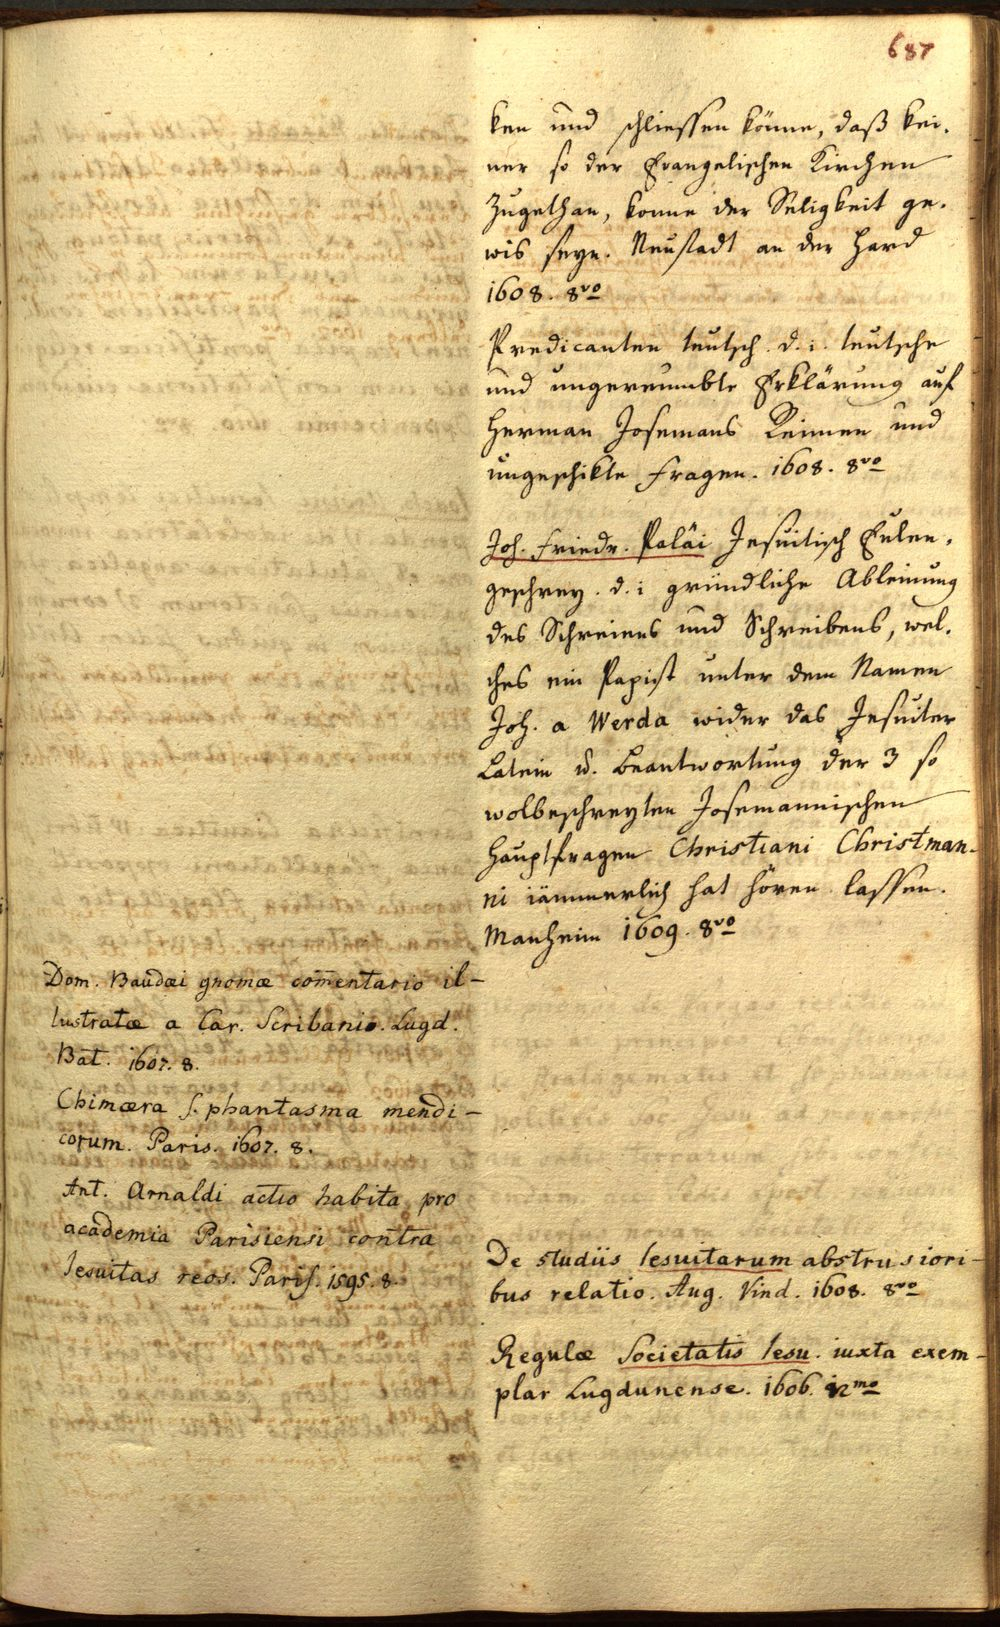 687
ken und schliessen könne, daß kei-
ner so der Evangelischen Kirchen
zugethan, konne der Seligkeit ge-
wis seyn. Neustadt an der Hard
1608. 8vo
Predicanten teutsch. d. i. teutsche
und ungereumbte Erklärung auf
Herman Josemans Reimen und
ungeschikte Fragen. 1608. 8vo
Joh. Friedr. Paläi Jesuitisch Eulen-
geschrey. d. i gründliche Ableinung
des Schreiens und Schreibens, wel-
ches ein Papist unter dem Namen
Joh. a Werda wider das Jesuiter
Latein u. beantwortung der 3 so
wolbeschreyten Josemannischen
Hauptfragen Christiani Christman-
ni iämmerlich hat hören lassen.
Manheim 1609. 8vo
Dom. Baudæi gnomæ com̄entario il-
lustratæ a Car. Scribanio. Lugd.
Bat. 1607. 8.
Chimæra s. phantasma mendi-
corum. Paris. 1607. 8.
Ant. Arnaldi actio habita pro
academia Parisiensi contra
Iesuitas reos. Paris. 1595. 8.
De studiis Iesuitarum abstrusiori-
bus relatio. Aug. Vind. 1608. 8vo
Regulæ Societatis Iesu. iuxta exem-
plar Lugdunense. 1606. 12mo